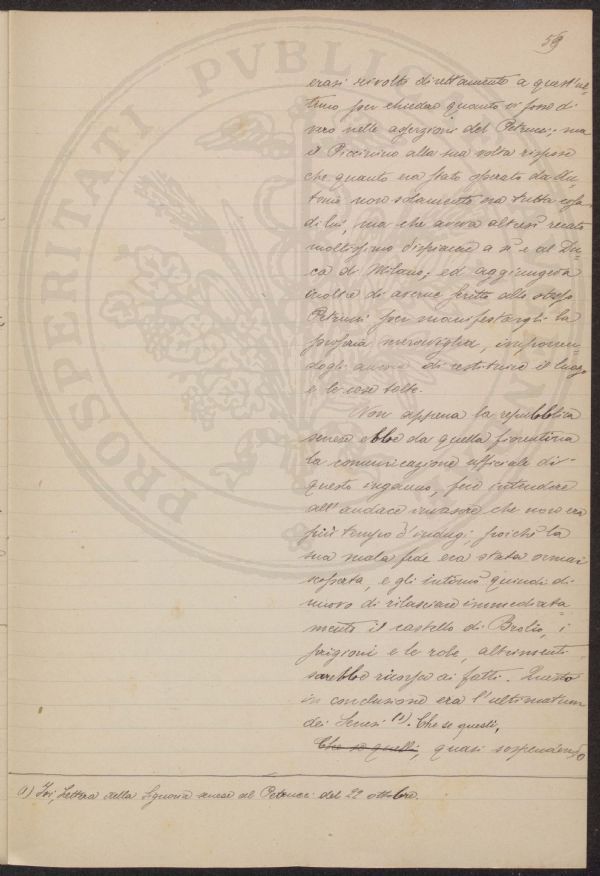 59
erasi rivolto direttamente a quest'ul=
timo per chiedere quanto vi fosse di
vero nelle asserzioni del Petrucci; ma
il Piccinino alla sua volta rispose
che quanto era stato operato da An=
tonio non solamente era tutta cosa
di lui, ma che aveva altresì recato
moltissimo dispiacere a sì e al Du=
ca di Milano; ed aggiungeva
inoltre di averne scritto allo stesso
Petrucci per manifestargli la
propria meraviglia, imponen=
dogli ancora di restituire il luogo
e le cose tolte.
Non appena la repubblica
senese ebbe da quella fiorentina
la comunicazione officiale di
questo inganno, fece intendere
all'audace invasore che non era
più tempo d'indugi, poichè la
sua mala fede era stata ormai
scoperta, e gli intimò quindi di
nuovo di rilasciare immediata=
mente il castello di Brolio, i
prigioni e le robe, altrimenti
sarebbe ricorso ai fatti. Questo
in conclusione era l'ultimatum
dei Senesi (1). Che se questi,
Che se quelli, quasi sospendendo
(1) Ivi, Lettera della Signoria senese al Petrucci del 22 ottobre.
PROSPERITATI PVBLICAE